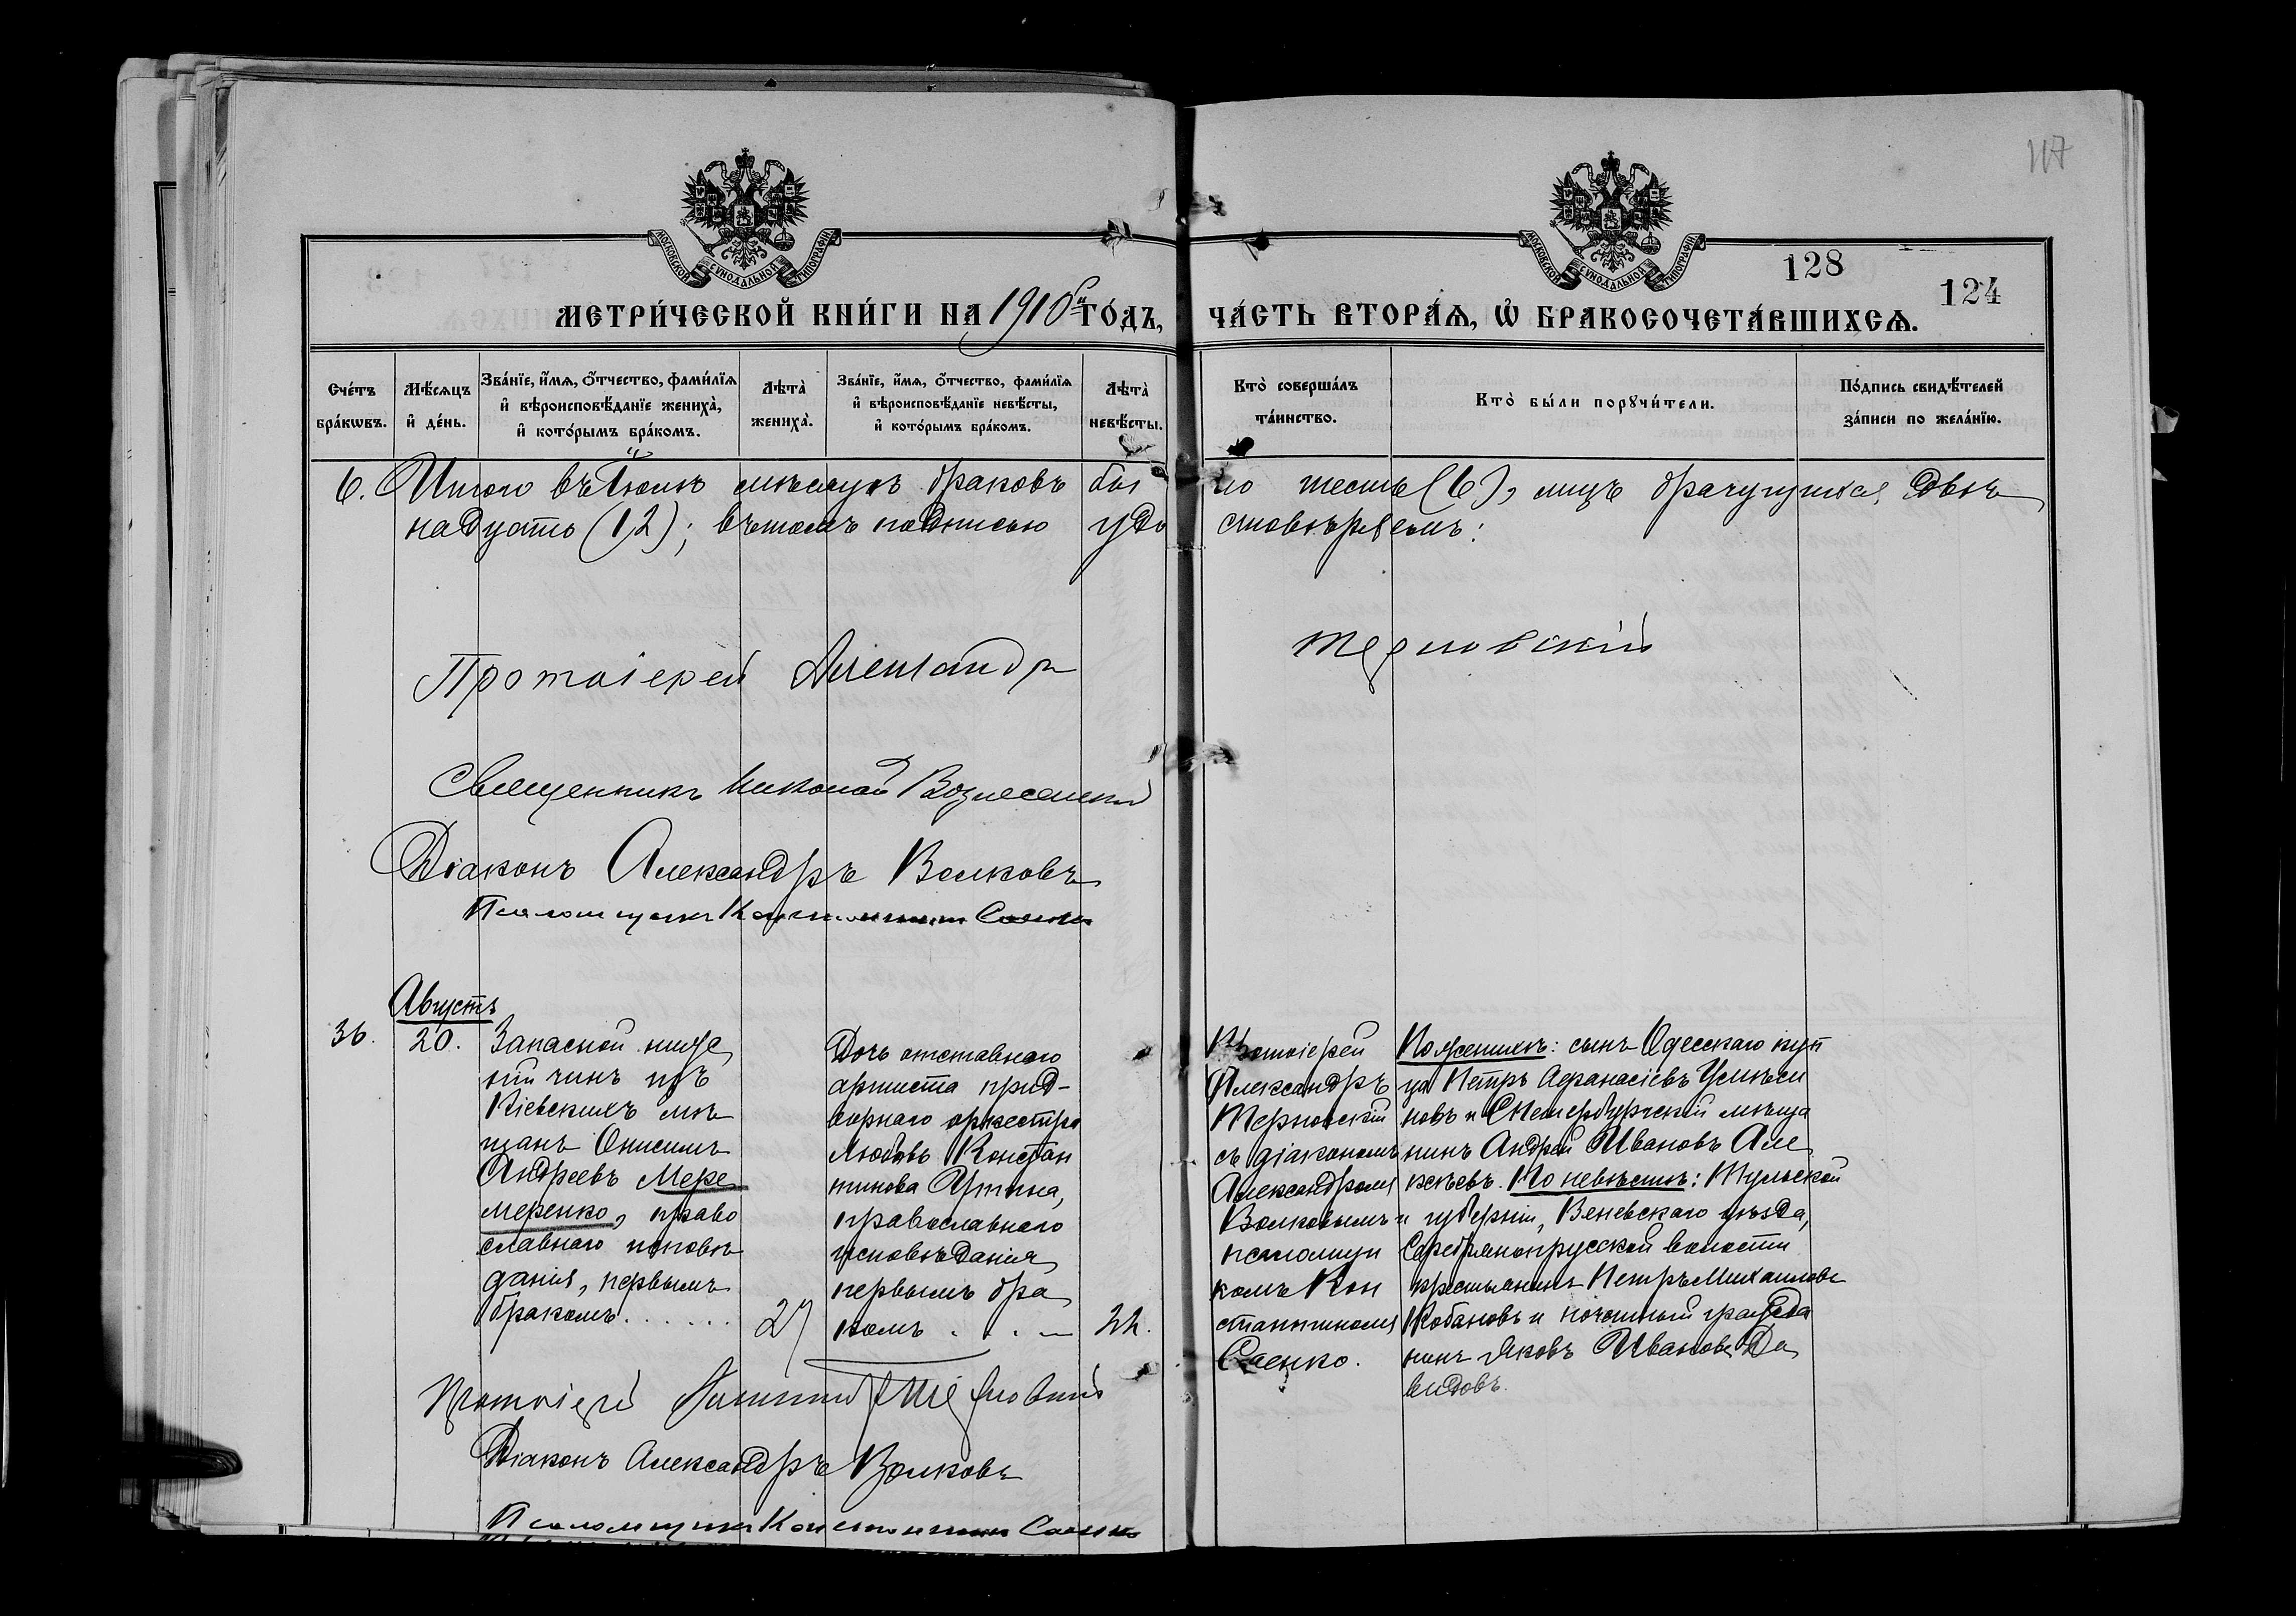 117
МОСКОВСКОЙ СѴНОДАЛЬНОЙ ТИПОГРАФІИ
МОСКОВСКОЙ СѴНОДАЛЬНОЙ ТИПОГРАФІИ
128
124
МЕТРИ́ЧЕСКОЙ КНИ́ГИ НА 1910 й ГО́ДЪ,
ЧА́СТЬ ВТОРА́Ѧ, Ѡ҆ БРАКОСОЧЕТА́ВШИХСѦ.
Сче́тъ бра́кѡвъ.
Мѣ́сѧцъ и҆ де́нь.
Зва́нїе, и҆́мѧ, ѻ҆́тчество, фами́лїѧ и҆ вѣроисповѣ́данїе жениха̀, и҆ кото́рымъ бра́комъ.
Лѣта̀ жениха̀.
Зва́нїе, и҆́мѧ, ѻ҆́тчество, фами́лїѧ и҆ вѣроисповѣ́данїе невѣ́сты, и҆ кото́рымъ бра́комъ.
Лѣта̀ невѣ́сты.
Кто̀ соверша́лъ та́инство.
Кто̀ бы́ли порꙋчи́тели.
По́дпись свидѣ́телей за́писи по жела́нїю.
6. Итого въ Іюлѣ мѣсяцѣ браковъ бы ло шесть (6), лицъ брачущихся двѣ
надцать (12); въ томъ подписью удо стовѣряемъ:
Протоіерей Александръ Терновскій
Священникъ Николай Вознесенскій
Діаконъ Александръ Волковъ
Псаломщикъ Константинъ Саенко
Августъ
36.
20.
Запасной ниж
ній чинъ изъ
Кіевскихъ мѣ
щанъ Онисимъ
Андреевъ Мере
меренко, право
славнаго исповѣ
данія, первымъ
бракомъ......
27
Дочь отставнаго
артиста прид-
ворнаго оркестра
Любовь Констан
тинова
православнаго
исповѣданія
первымъ бра
комъ . . .
22.
Протоіерей
Александръ
Терновскій
съ діакономъ
Александромъ
Волковымъ и
псаломщи
комъ Кон
стантиномъ
Саенко.
По женихѣ: сынъ Одесскаго куп
ца Петръ Афанасіевъ
новъ и СПетербургскій мѣща
нинъ Андрей Ивановъ Але
ксѣевъ. По невѣстѣ: Тульской
губерніи, Веневскаго уѣзда,
Серебрянопрусской волости
крестьянинъ Петръ Михаиловъ
Кобановъ и почетный гражда
нинъ Яковъ Ивановъ Да
видовъ.
Протоіерей Александръ Терновскій
Діаконъ Александръ Волковъ
Псаломщикъ Константинъ Саенко